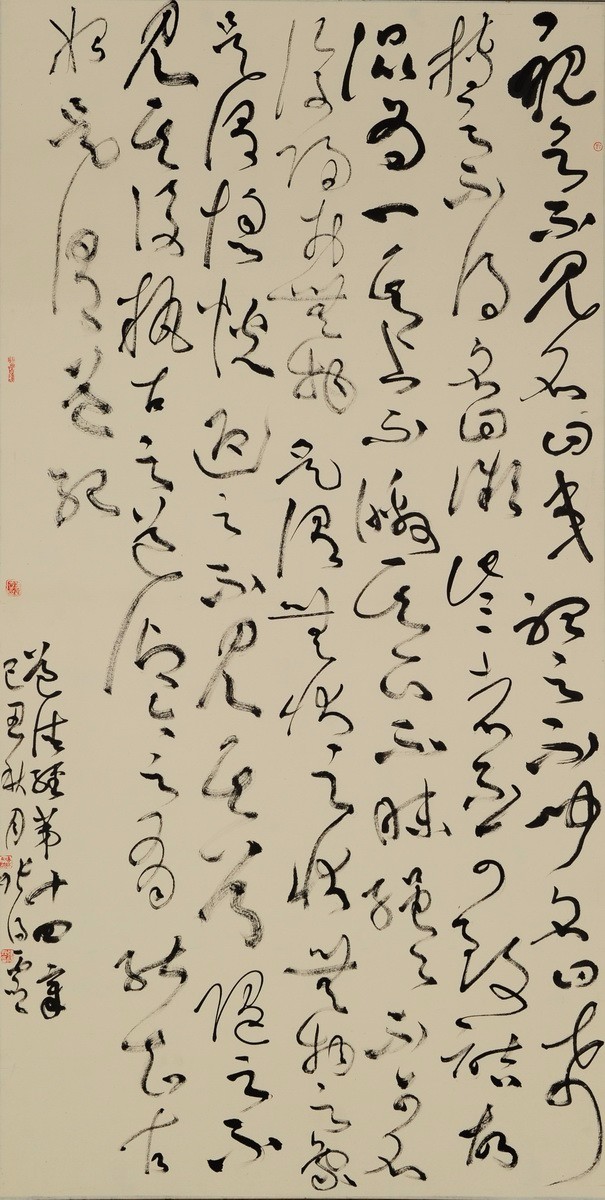 視之不見名曰夷聽之不聞名曰希
搏之不得名曰微此三者不可致詰故
混為一其上不皦其下不昧繩繩不可名
復歸於無物是謂無狀之狀無物之象
是謂惚恍迎之不見其首隨之不
見其後執古之道以御今之有能知古
始是謂道紀
道德經第十四章
己丑秋月張